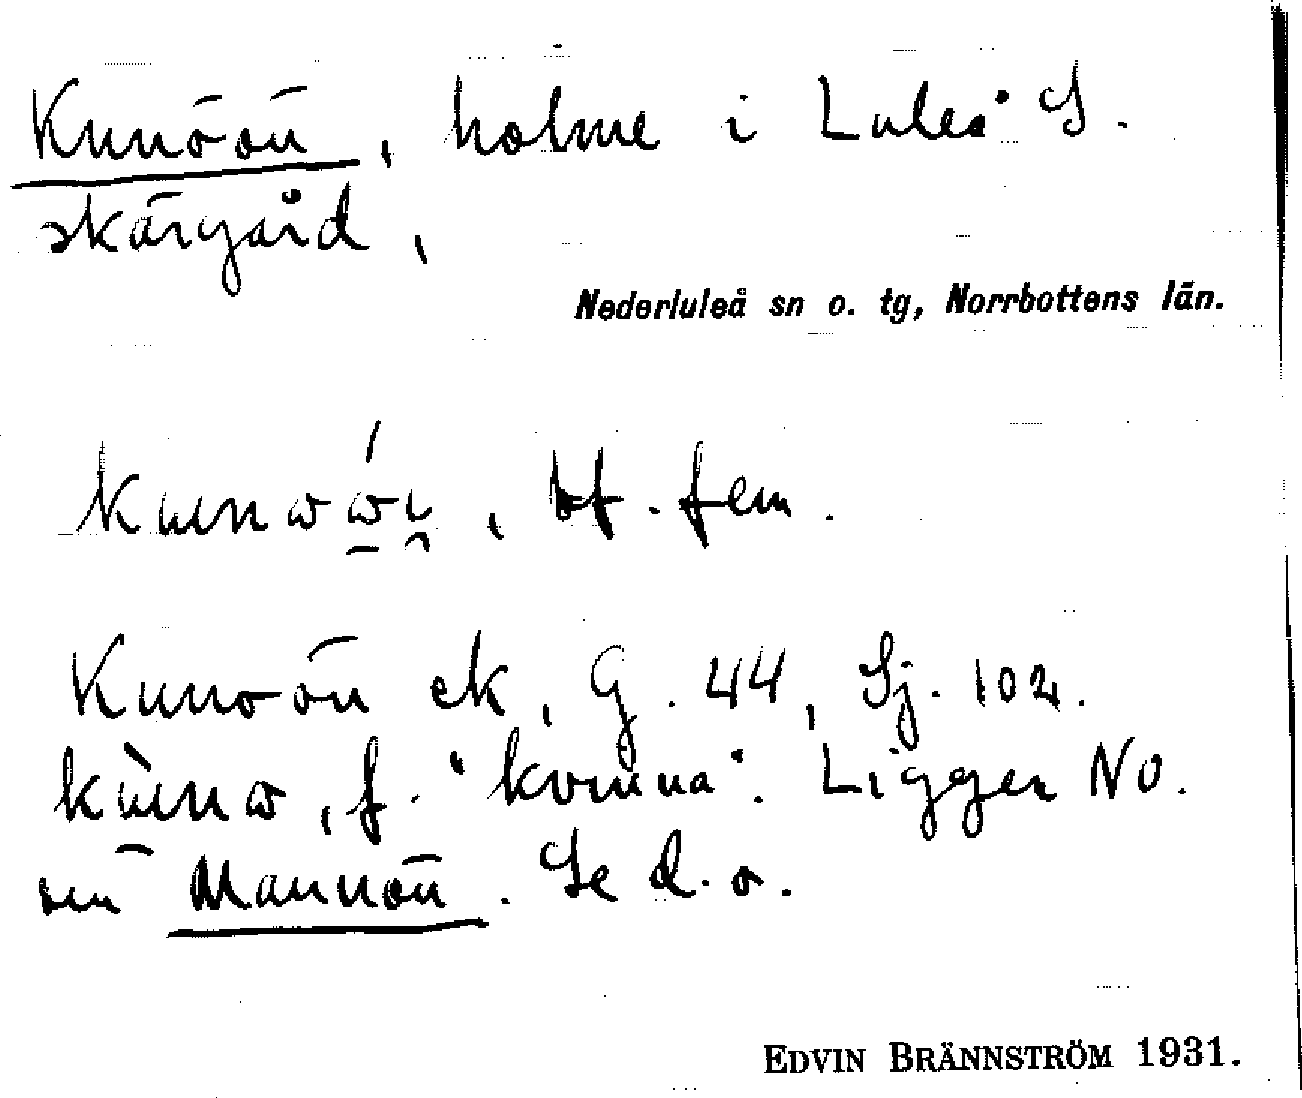 Kunoön, holme i Luleå S.
skärgård,
Nederluleå sn o. tg, Norrbottens län.
bf. fem.
Kunoön ek, G. 44, Sj. 102.
f. "kvinna". Ligger NO.
om Mannön. Se d. o.
EDVIN BRÄNNSTRÖM 1931.